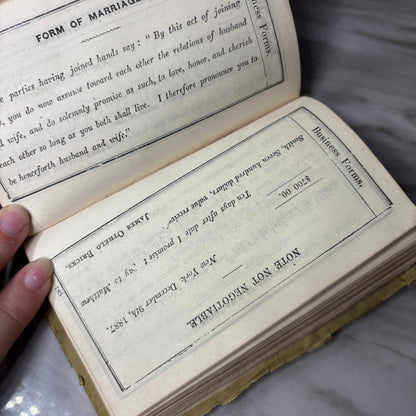 Business Forms.
FORM OF MARRIAGE
e parties having joined hands say: “By this act of joining
s, you do now assume toward each other the relations of husband
wife, and do solemnly promise as such, to love, honor, and cherish
each other so long as you both shall live. I therefore pronounce you to
be henceforth husband and wife.”
Business Forms.
NOTE NOT NEGOTIABLE.
$700.00. New York, December 9th, 1887.
Ten days after date I promise to pay to Matthew
Smith, Seven hundred dollars, value received.
JAMES